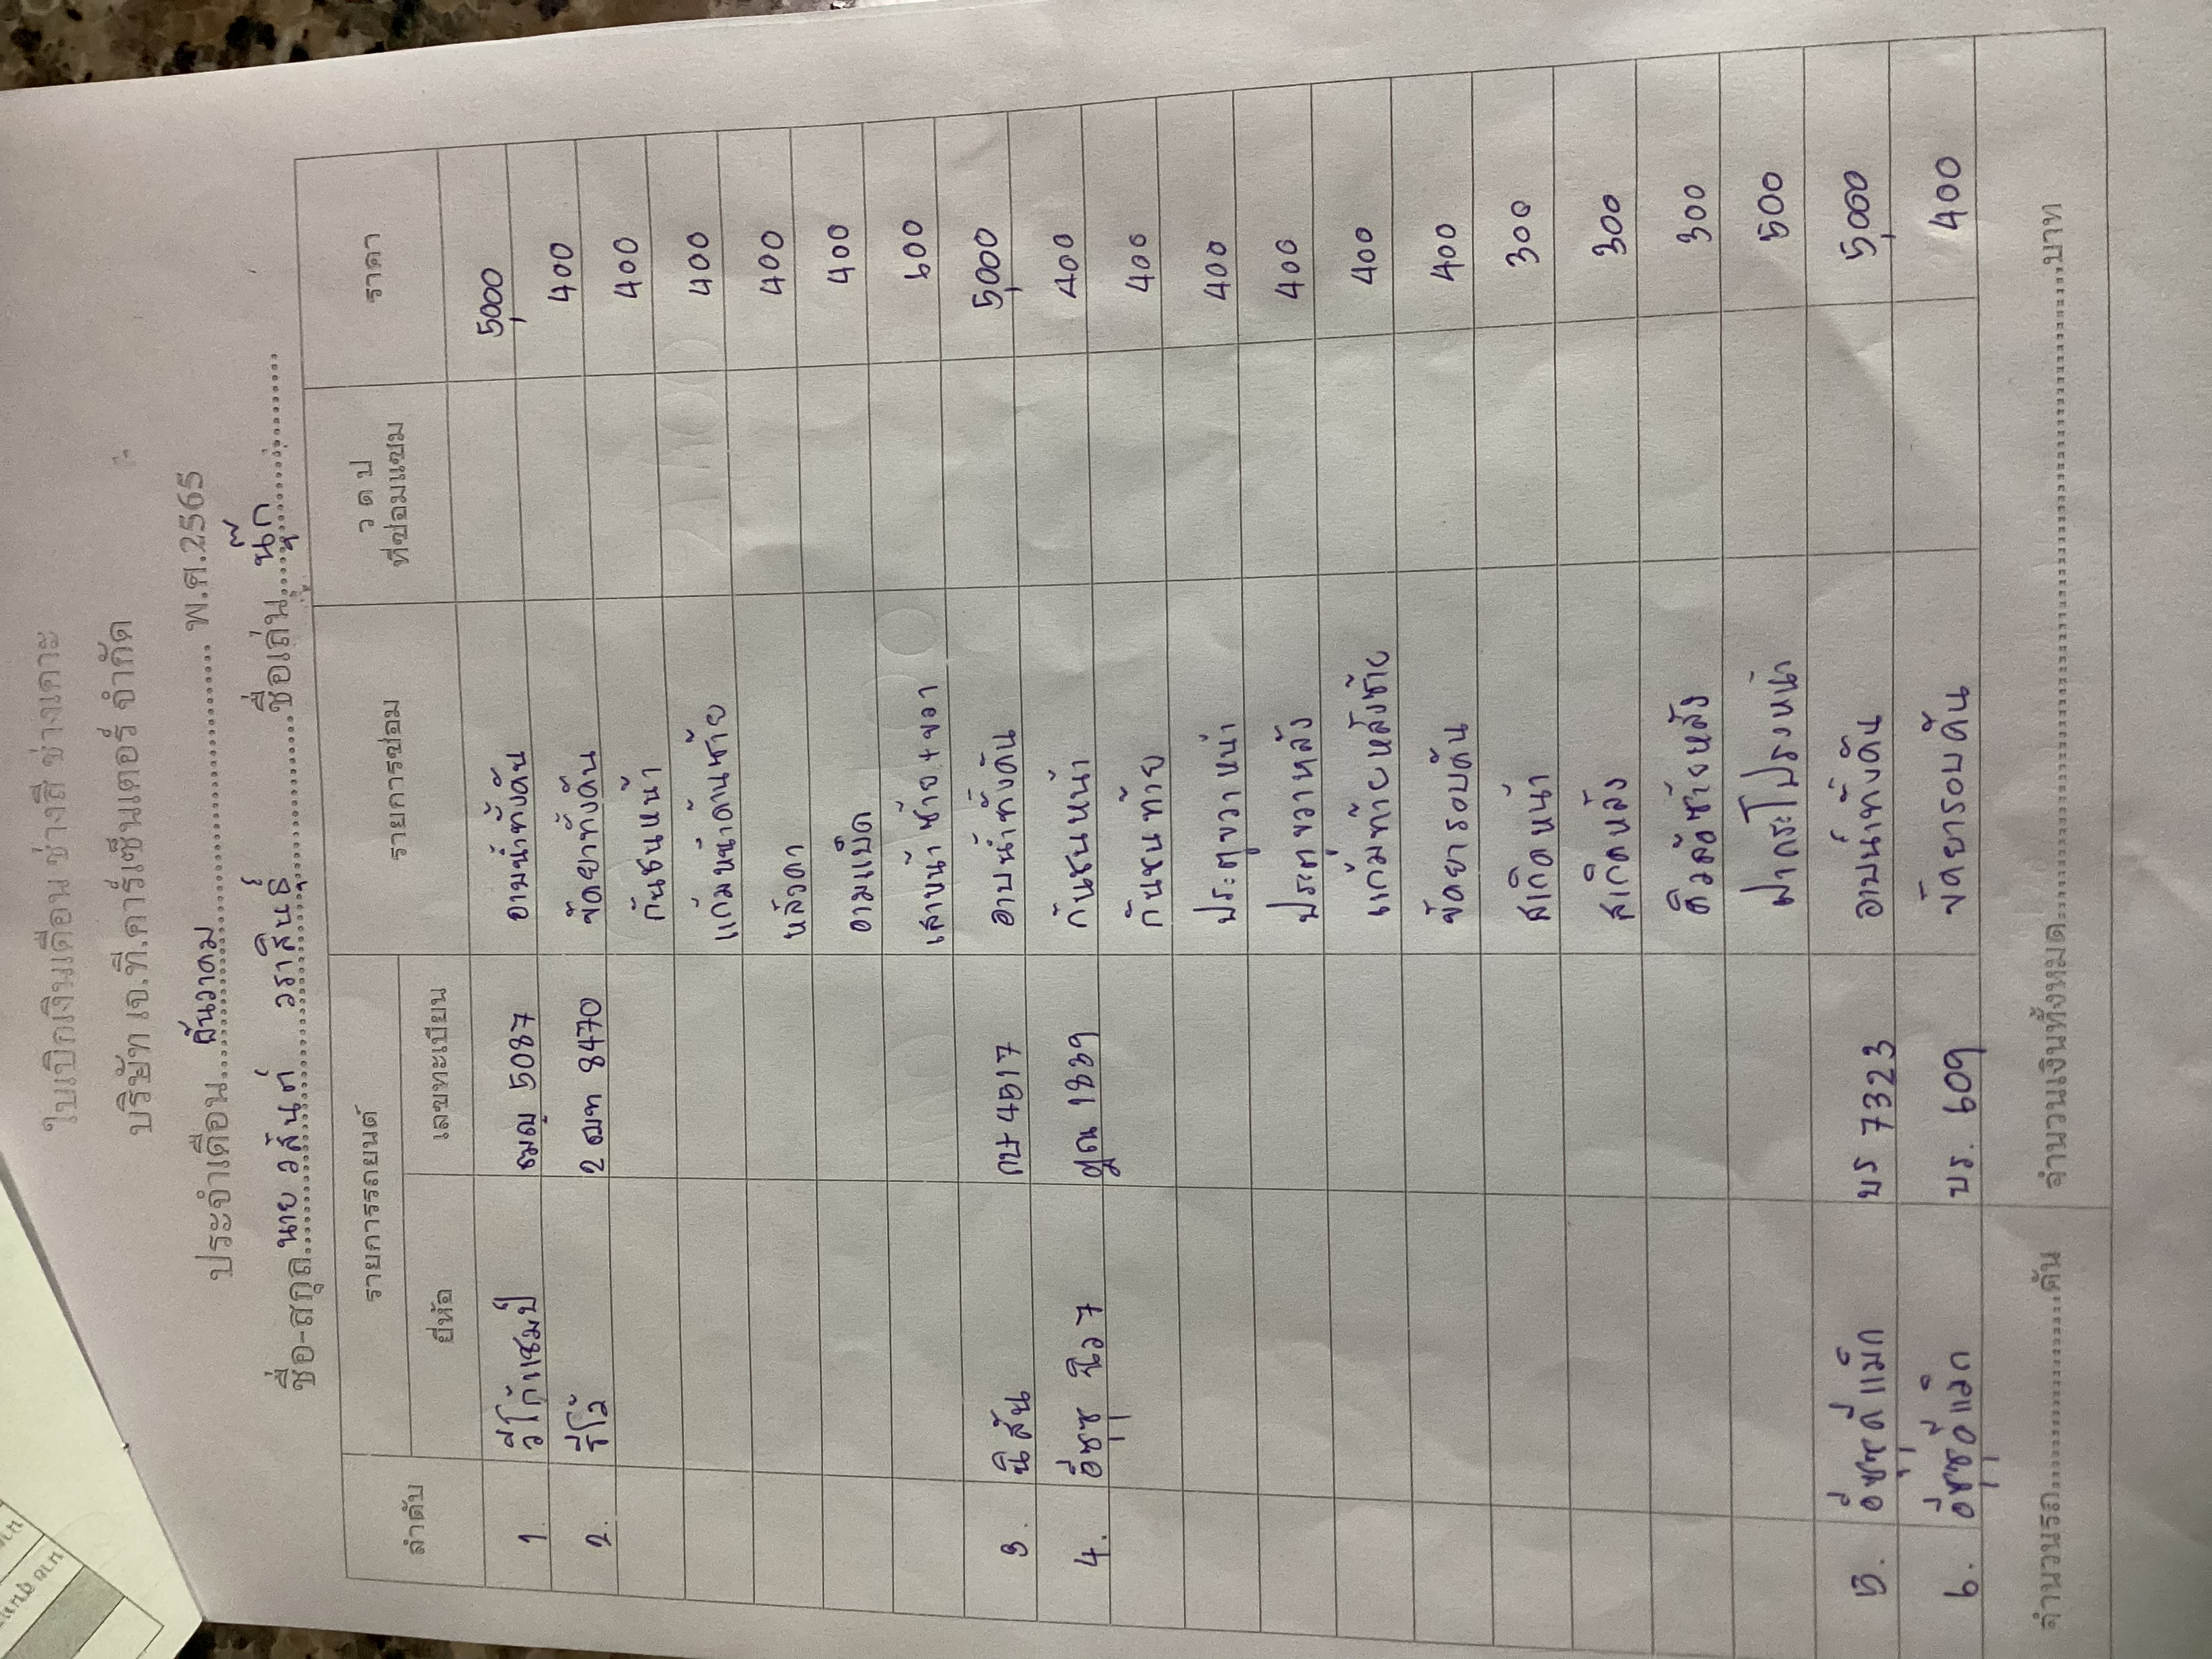 ใบเบิกเงินเดือน ช่างสี ช่างเคาะ
บริษัท เจ.ที.คาร์เซ็นเตอร์ จำกัด
ประจำเดือน....ธันวาคม.... พ.ศ.2565
ชื่อ-สกุล นาย วสันต์ วราสินธุ์ ชื่อเล่น นุ๊ก
ลำดับ รายการรถยนต์ รายการซ่อม ว ด ป ที่ซ่อมแซม ราคา
ยี่ห้อ เลขทะเบียน
1. วีโก้แชมป์ 5087 อาบน้ำทั้งคัน 5,000
2. รีโว้ 2 ฒฑ 8470 ขัดยาทั้งคัน 400
กันชนหน้า 400
แก้มหน้าด้านซ้าย 400
หลังคา 400
อามเบ็ด 400
เสาหน้า ซ้าย + ขวา 600
3 นิสสัน กษ 4517 อาบน้ำทั้งคัน 5,000
4. อีซูซุ มิว 7 ฎณ กันชนหน้า 400
กันชนท้าย 400
ประตูขวาหน้า 400
ประตูขวาหลัง 400
แก้มท้ายหลังซ้าย 400
ขัดยารอบคัน 400
สเกิดหน้า 300
สเกิดหลัง 300
คิ้วล้อซ้ายหลัง 300
ฝากระโปรงหน้า 500
5. อีซูซุดีแม็ก บร 7323 อาบน้ำทั้งคัน 5,000
6. อีซูซุดีแม็ก บร. 609 ขัดยารอบคัน 400
จำนวนรถ....................คัน จำนวนเงินทั้งหมด....................บาท